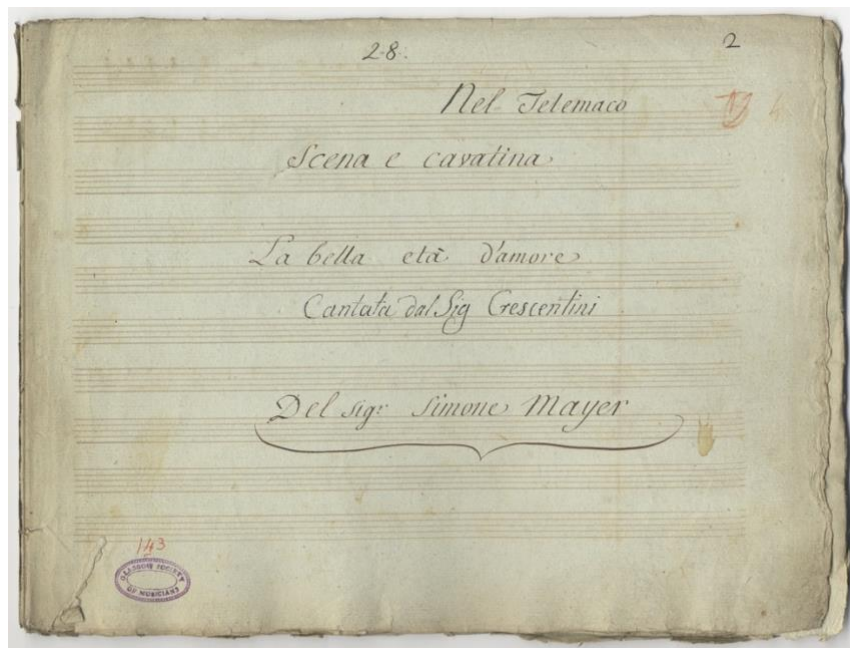 28. 2
Nel Telemaco
Scena e cavatina
La bella età d'amore
Cantata dal Sig Crescentini
Del Sigr. Simone Mayer
143
GLASGOW SOCIETY
OF MUSICIANS